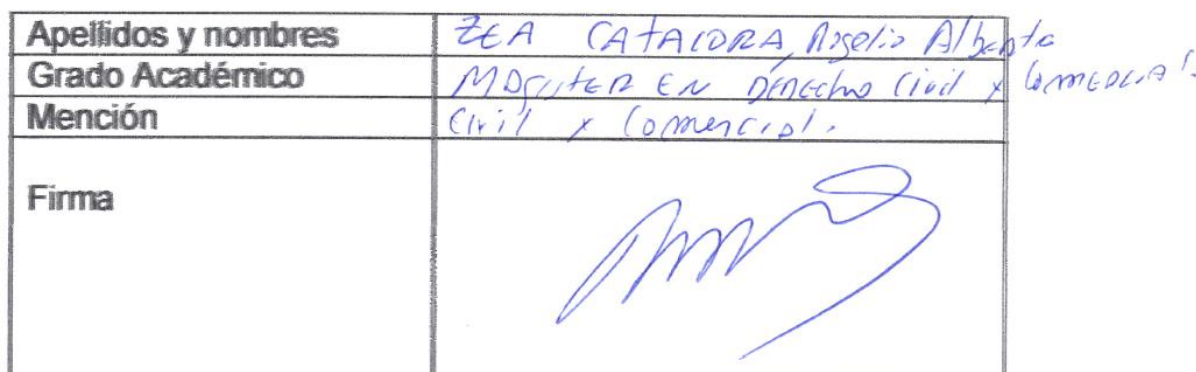 Apellidos y nombres ZEA CATACORA, Rogelio Alberto
Grado Académico MAGISTER EN DERECHO Civil y Comercial
Mención Civil y Comercial.
Firma